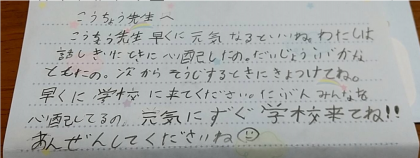 こうちょう先生へ
こうちょう先生早くに元気なるといいね。わたしは
話しきいたときに心配したの。だいじょうぶかな
ともたの。次からそうじするときにきょつけてね。
早くに学校に来てください。たぶんみんなな
心配してるの 元気にすぐ学校来てね!!
あんぜんしてくださいね☺